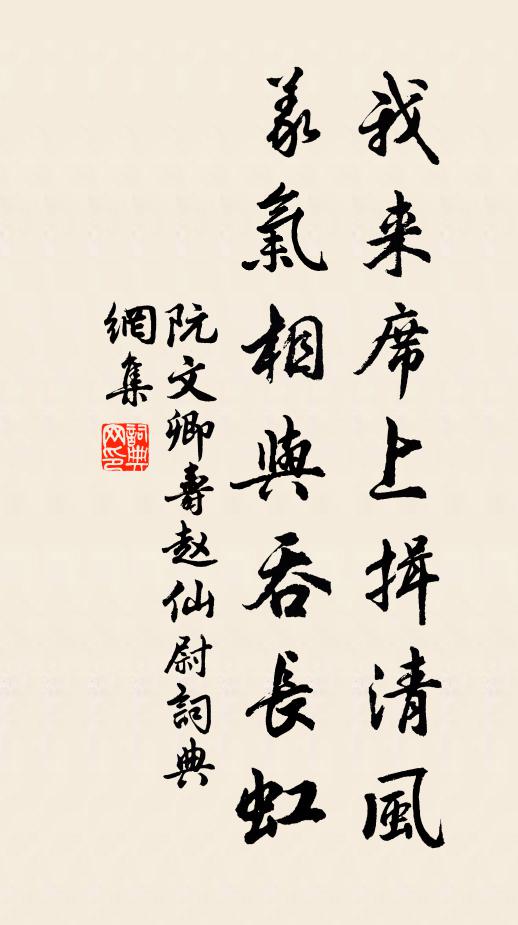 我来席上揖清風
義氣相與吞長虹
阮文卿壽赵仙尉詞典
網集
詞典
网印